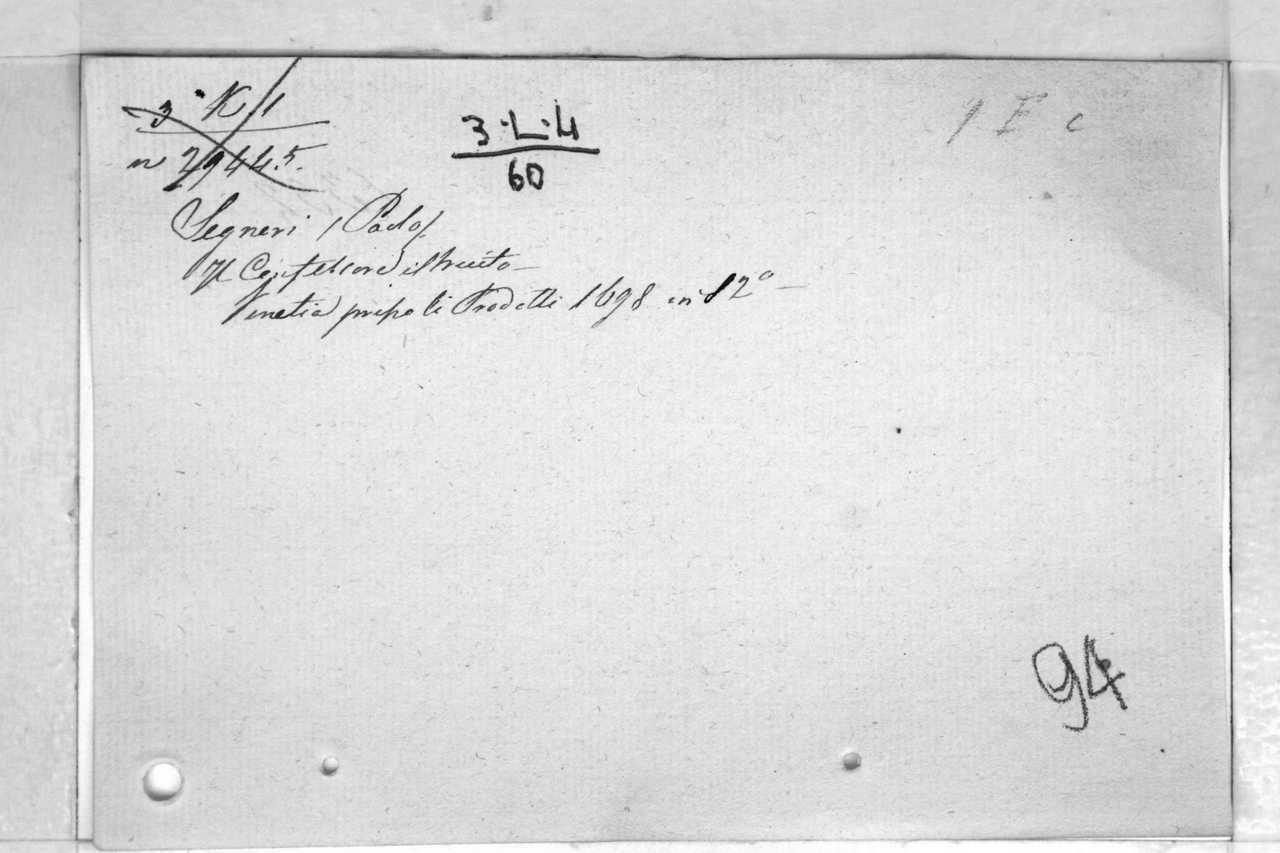 3 K/1
n 2944.5.
3·L·4
60
1 E c
Segneri /Paolo/
Il Confessore istruito
Venetia pripo li Prodotti 1698 in 12°
94